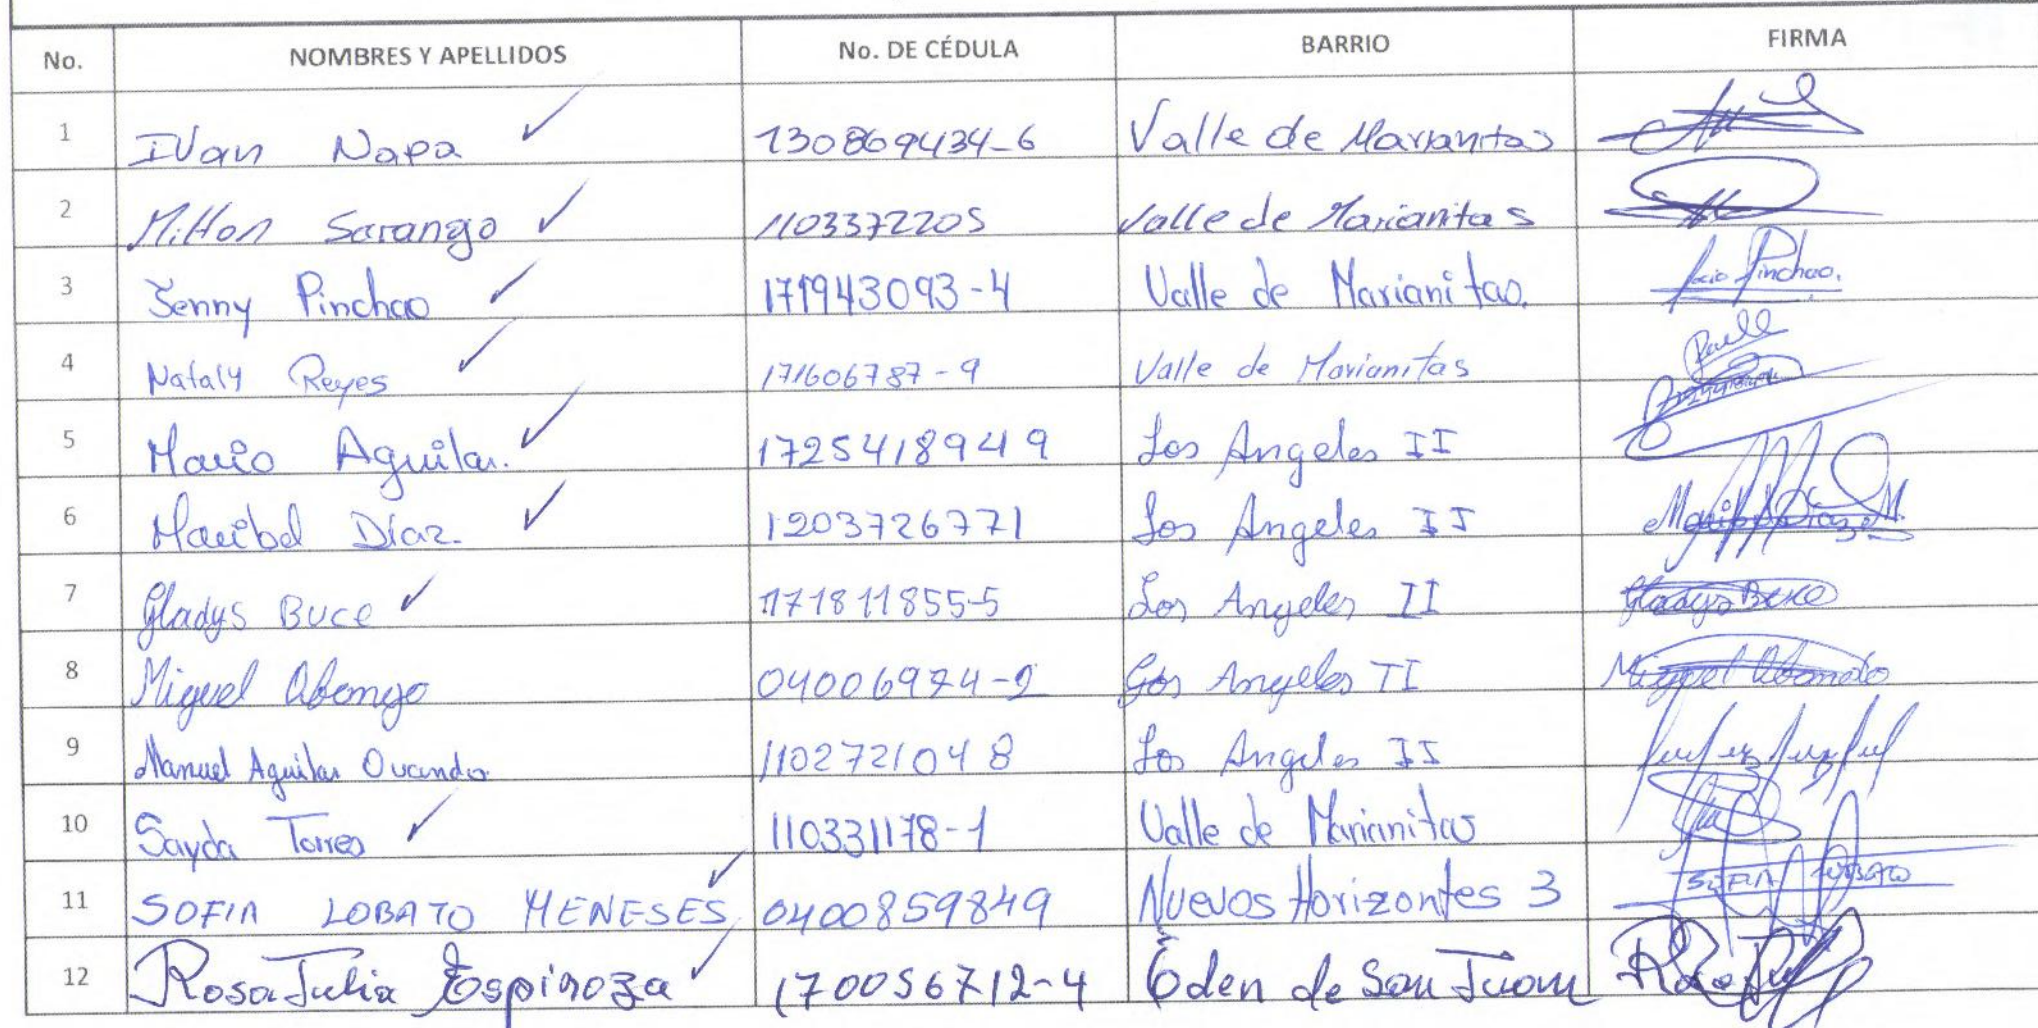 No. NOMBRES Y APELLIDOS No. DE CÉDULA BARRIO FIRMA
1 Ivan Napa ✓ 130869434-6 Valle de Marianitas
2 Milton Sarango ✓ 1103372205 Valle de Marianitas
3 Jenny Pinchao ✓ 171943093-4 Valle de Marianitas. Pinchao.
4 Nataly Reyes ✓ 171606787-9 Valle de Marianitas
5 Mario Aguilar. ✓ 1725418949 Los Angeles II
6 Maribel Díaz. ✓ 1203726771 Los Angeles II Maribel Diaz M.
7 Gladys Buce ✓ 171811855-5 Los Angeles II Gladys Buce
8 Miguel 04006974-2 Los Angeles II Miguel
9 Manuel Aguilar Ovando 1102721048 Los Angeles II
10 Sayda Torres ✓ 110331178-1 Valle de Marianitas
11 SOFIA LOBATO MENESES ✓ 0400859849 Nuevos Horizontes 3 SOFIA LOBATO
12 Rosa Julia Espinoza ✓ 170056712-4 Eden de San Juan